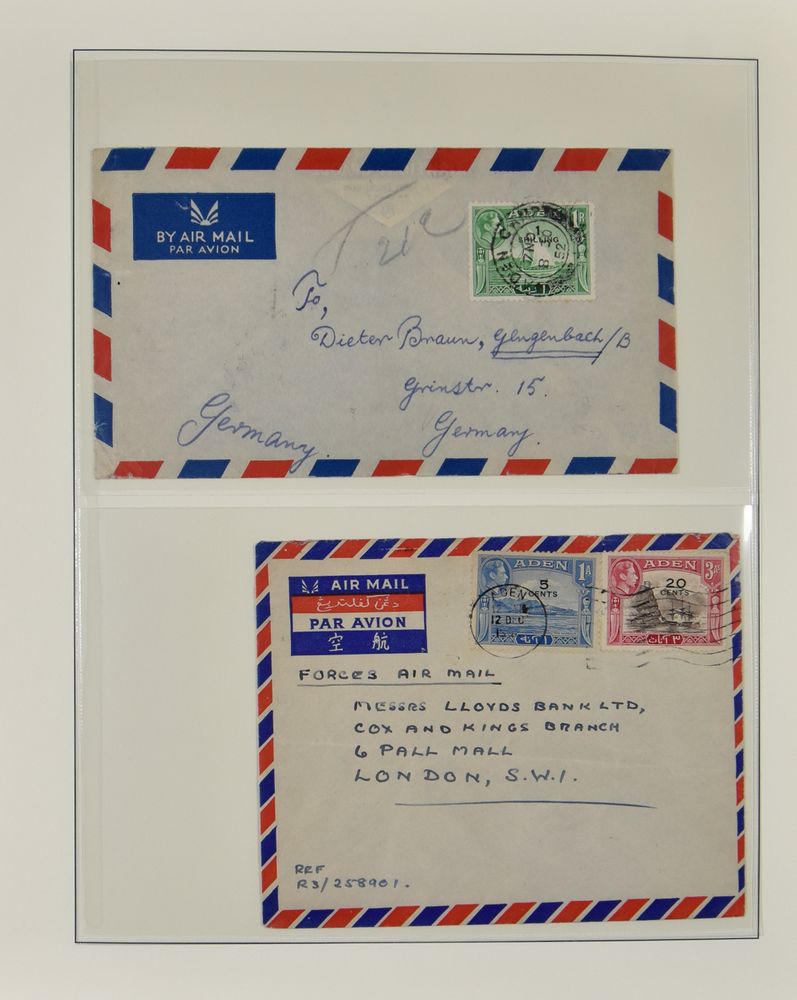 BY AIR MAIL
PAR AVION
ADEN
1R
1
SHILLING
To,
Dieter Braun, Gengenbach/B
Grinstr. 15.
Germany.
Germany.
AIR MAIL
PAR AVION
空 航
ADEN 1A
5
CENTS
ADEN 3AS
20
CENTS
ADEN
12 DEC
FORCES AIR MAIL
MESSRS LLOYDS BANK LTD,
COX AND KINGS BRANCH
6 PALL MALL
LONDON, S.W.1.
REF
R3/258901.